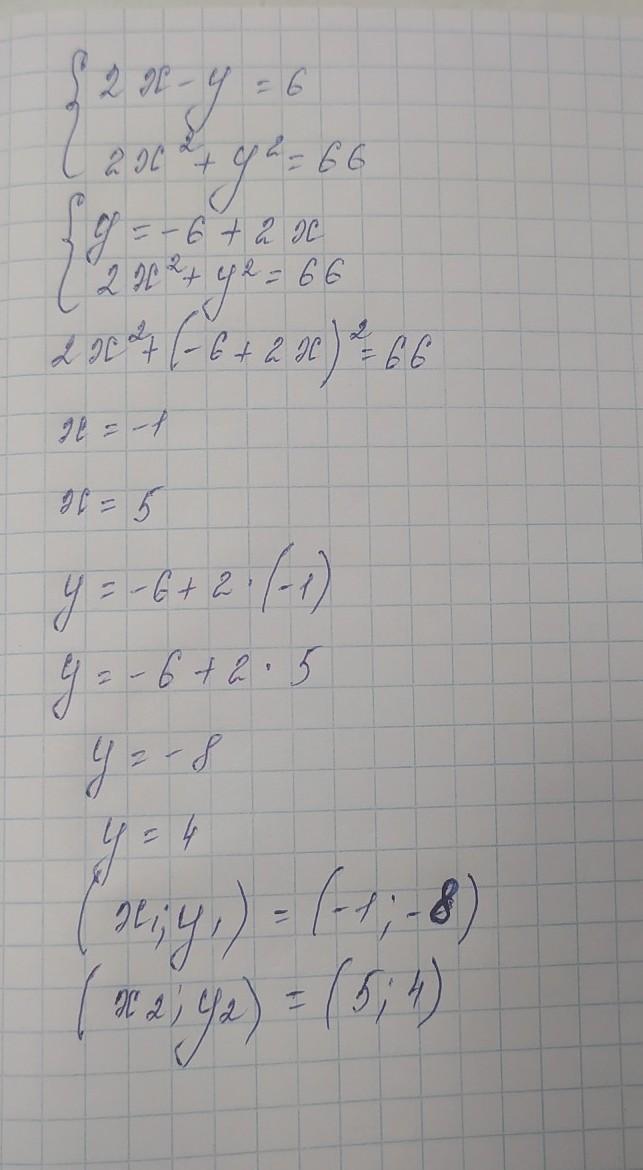 { 2x - y = 6
2x² + y² = 66
{ y = -6 + 2x
2x² + y² = 66
2x² + (-6 + 2x)² = 66
x = -1
x = 5
y = -6 + 2 · (-1)
y = -6 + 2 · 5
y = -8
y = 4
(x₁; y₁) = (-1; -8)
(x₂; y₂) = (5; 4)